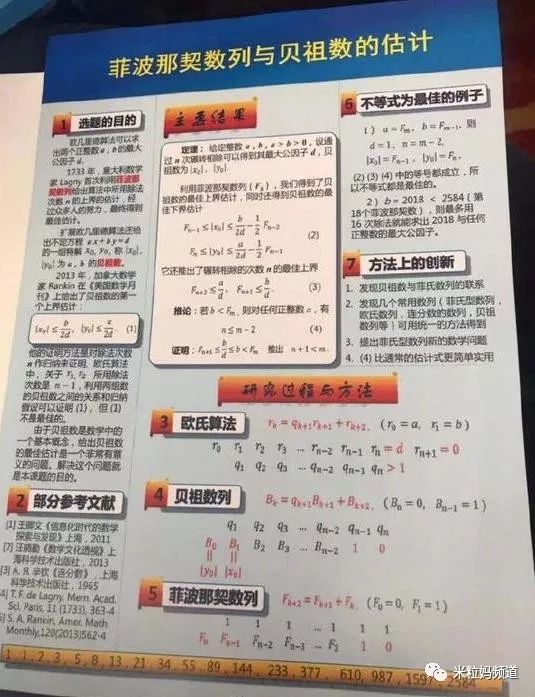 菲波那契数列与贝祖数的估计
1 选题的目的
欧几里德算法可以求
出两个正整数 a, b 的最大
公因子 d.
1733 年, 意大利数学
家 Lagny 首次利用菲波那
契数列给出算法中所用除法
次数 n 的上界的估计, 经
过众多人的努力, 最终得到
最佳估计。
扩展欧几里德算法还给
出不定方程 ax+by=d
的一组特解 x₀, y₀, 称 |x₀|,
|y₀| 为 a, b 的贝祖数。
2013 年, 加拿大数学
家 Rankin 在《美国数学月
刊》上给出了贝祖数的第一
个上界估计:
|x₀| ≤ b/2d, |y₀| ≤ a/2d. (1)
他的证明方法是对除法次数
n 作归纳来证明. 欧氏算法
中, 关于 r₁, r₂ 所用除法
次数是 n−1, 利用两组数
的贝祖数之间的关系和归纳
假设可以证明 (1), 但 (1)
不是最佳的。
由于贝祖数是数学中的
一个基本概念, 给出贝祖数
的最佳估计是一个非常有意
义的问题。解决这个问题就
是本课题的目的。
2 部分参考文献
[1] 王卿文《信息化时代的数学
探索与发现》上海, 2011
[2] 汪晓勤《数学文化透视》上
海科学技术出版社, 2013
[3] A. 辛钦《连分数》, 上海
科学技术出版社, 1965
4] T. F. de Lagny, Mem. Acad.
Sci. Paris, 11 (1733), 363-4
5] S. A. Rankin, Amer. Math.
Monthly,120(2013)562-4
主要结果
定理: 给定整数 a, b, a > b > 0, 设通
过 n 次辗转相除可以得到其最大公因子 d, 贝
祖数为 |x₀|, |y₀|.
利用菲波那契数列 (Fₖ), 我们得到了贝
祖数的最佳上界估计, 同时还得到贝祖数的最
佳下界估计
Fₙ₋₁ ≤ |x₀| ≤ b/2d − 1/2 Fₙ₋₂
(2)
Fₙ ≤ |y₀| ≤ a/2d − 1/2 Fₙ₋₁
它还推出了辗转相除的次数 n 的最佳上界
Fₙ₊₂ ≤ a/d, Fₙ₊₁ ≤ b/d. (3)
推论: 若 b < Fₘ, 则对任何正整数 a, 有
n ≤ m − 2 (4)
证明: Fₙ₊₁ ≤ b/d ≤ b < Fₘ 推出 n + 1 < m.
6 不等式为最佳的例子
1) a = Fₘ, b = Fₘ₋₁, 则
d = 1, n = m − 2,
|x₀| = Fₙ₋₁, |y₀| = Fₙ.
(2) (3) (4) 中的等号都成立, 所
以不等式都是最佳的。
2) b = 2018 < 2584 (第
18个菲波那契数), 则最多用
16 次除法就能求出 2018 与任何
正整数的最大公因子。
7 方法上的创新
1. 发现贝祖数与菲氏数列的联系
2. 发现几个常用数列 (菲氏型数列,
欧氏数列, 连分数的数列, 贝祖
数列等) 可用统一的方法得到
3. 提出菲氏型数列新的数学问题
4. (4) 比通常的估计式更简单实用
研究过程与方法
3 欧氏算法 rₖ = qₖ₊₁rₖ₊₁ + rₖ₊₂, (r₀ = a, r₁ = b)
r₀ r₁ r₂ r₃ ... rₙ₋₂ rₙ₋₁ rₙ = d rₙ₊₁ = 0
q₁ q₂ q₃ ... qₙ₋₂ qₙ₋₁ qₙ > 1
4 贝祖数列 Bₖ = qₖ₊₁Bₖ₊₁ + Bₖ₊₂, (Bₙ = 0, Bₙ₋₁ = 1)
q₁ q₂ q₃ ... qₙ₋₂ qₙ₋₁ qₙ
B₀ B₁ B₂ B₃ ... Bₙ₋₂ 1 0
|| ||
|y₀| |x₀|
5 菲波那契数列 Fₖ₊₂ = Fₖ₊₁ + Fₖ, (F₀ = 0, F₁ = 1)
1 1 1 ... 1 1 1
Fₙ Fₙ₋₁ Fₙ₋₂ Fₙ₋₃ ... F₂ 1 0
1, 1, 2, 3, 5, 8, 13, 21, 34, 55, 89, 144, 233, 377, 610, 987, 1597, 2584
米粒妈频道